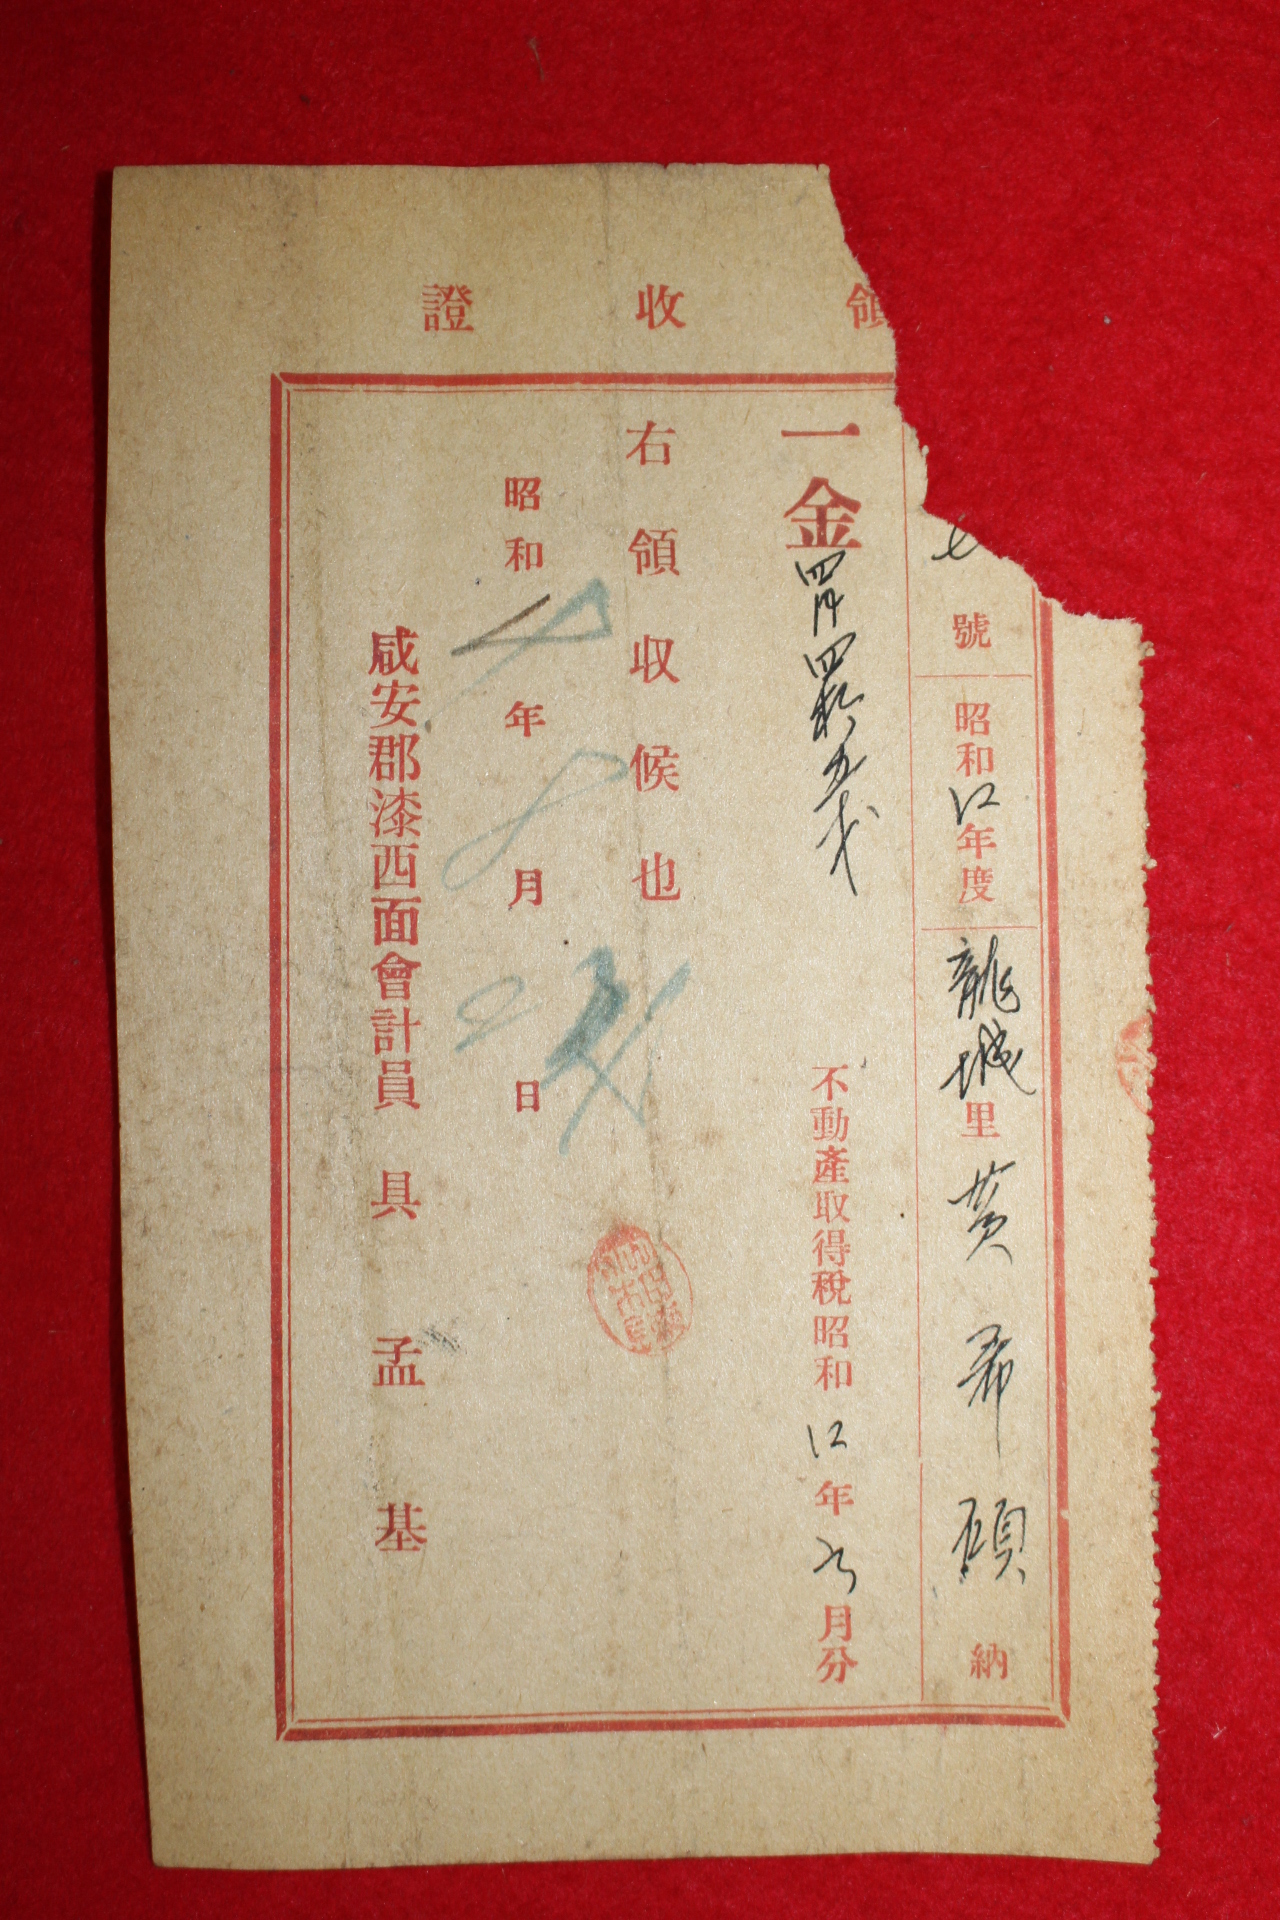 領收證
號 昭和12年度 龍城里 黄 希 碩 納
一金 四円四拾五戋
不動產取得稅昭和12年 月分
右領収候也
昭和 年 月 日
咸安郡漆西面會計員 具 孟 基